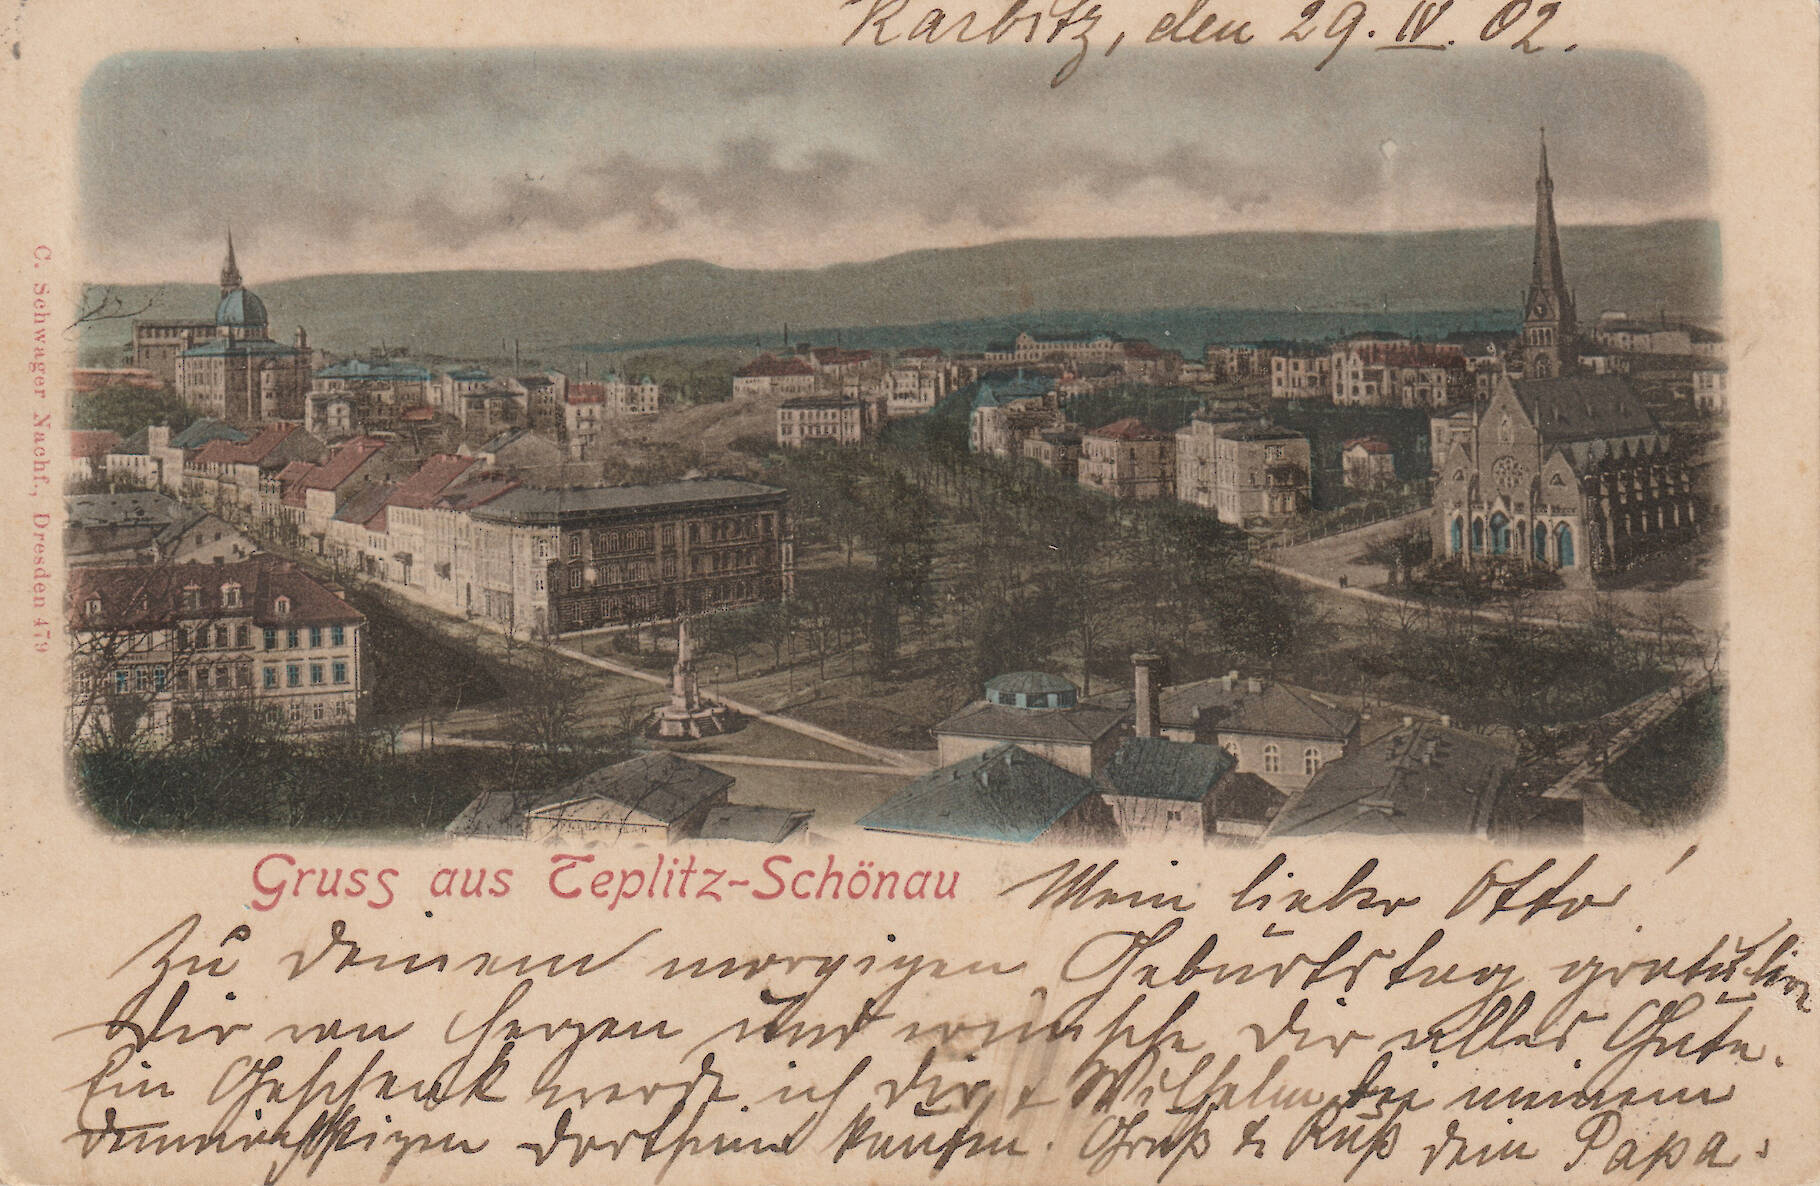 Karbitz, den 29. IV. 02.
C. Schwager Nachf., Dresden 479
Gruss aus Teplitz-Schönau
Mein lieber Otto!
Zu Deinem morgigen Geburtstag gratulire
Dir von Herzen und wünsche Dir alles Gute.
Ein Geschenk werde ich Dir & Wilhelm bei meinem
demnächstigen Dortsein kaufen. Gruß & Kuß Dein Papa.